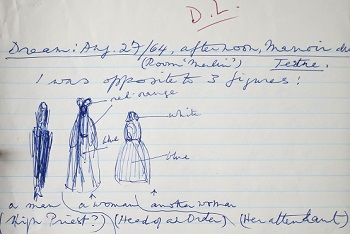 D.L.
Dream: Aug. 27/64, afternoon, Manoir du
(Room "Merlin") Tertre.
I was opposite to 3 figures:
red-orange
white
blue
blue
a man (a woman) another woman
(High Priest?) (Head of an Order) (Her attendant)